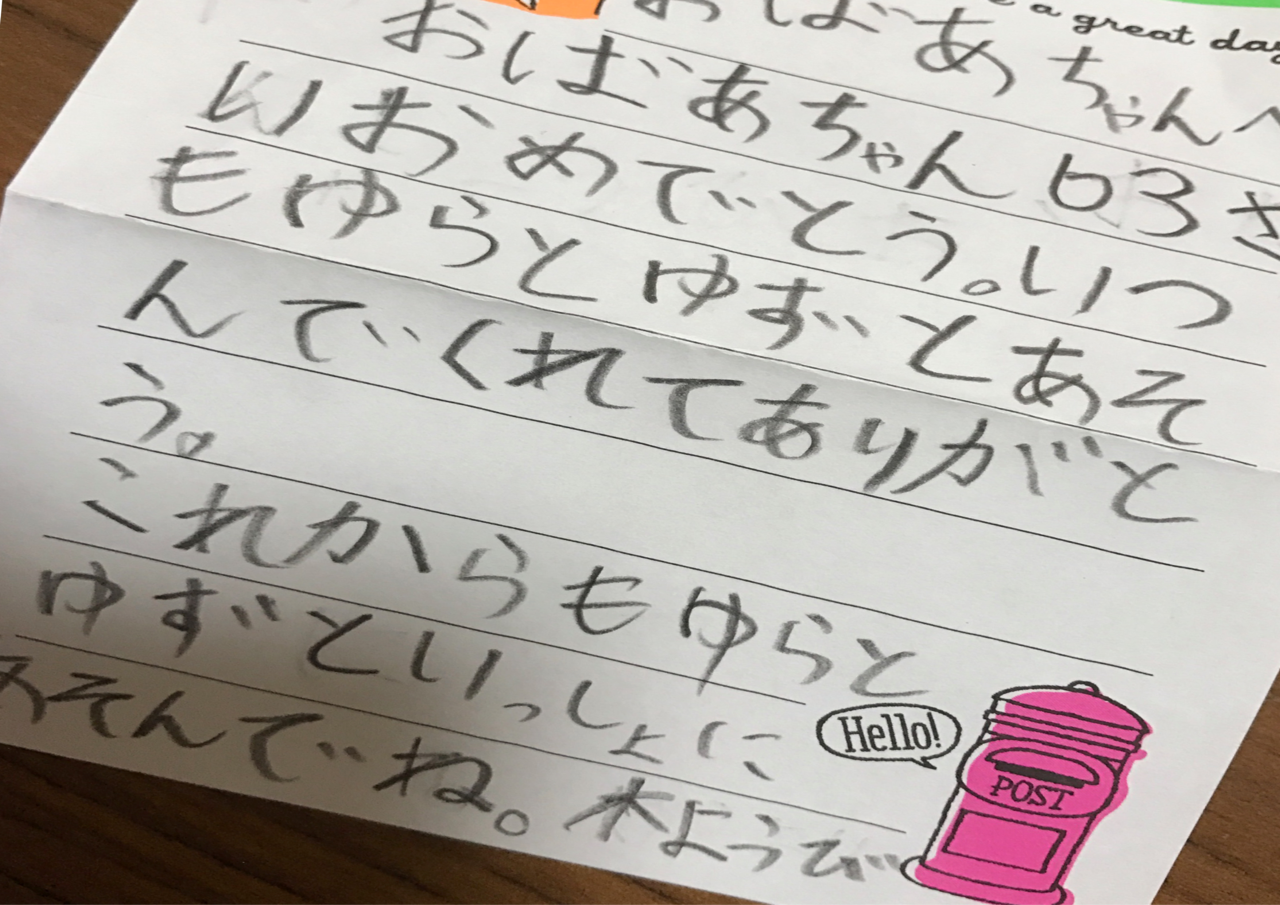 a great day
おばあちゃんへ
おばあちゃん63さ
いおめでとう。いつ
もゆらとゆずとあそ
んでくれてありがと
う。
これからもゆらと
ゆずといっしょに
あそんでね。木ようび
Hello!
POST